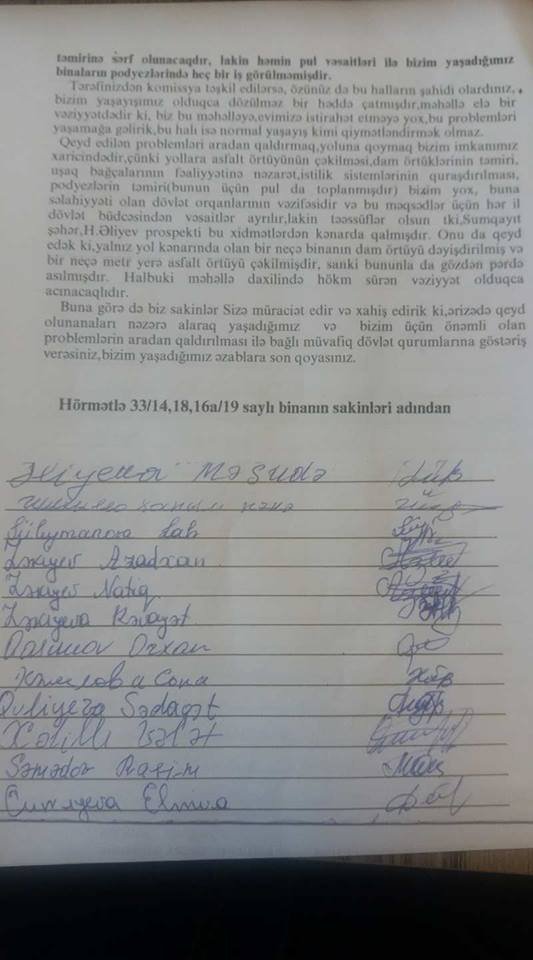 təmirinə sərf olunacaqdır, lakin həmin pul vəsaitləri ilə bizim yaşadığımız
binaların podyezlərində heç bir iş görülməmişdir.
Tərəfinizdən komissya təşkil edilərsə, özünüz də bu halların şahidi olardınız,
bizim yaşayışımız olduqca dözülməz bir həddə çatmışdır,məhəllə elə bir
vəziyyətdədir ki, biz bu məhəlləyə,evimizə istirahət etməyə yox,bu problemləri
yaşamağa gəlirik,bu halı isə normal yaşayış kimi qiymətləndirmək olmaz.
Qeyd edilən problemləri aradan qaldırmaq,yoluna qoymaq bizim imkanımız
xaricindədir,çünki yollara asfalt örtüyünün çəkilməsi,dam örtüklərinin təmiri,
uşaq bağçalarının fəaliyyətinə nəzarət,istilik sistemlərinin quraşdırılması,
podyezlərin təmiri(bunun üçün pul da toplanmışdır) bizim yox, buna
səlahiyyəti olan dövlət orqanlarının vəzifəsidir və bu məqsədlər üçün hər il
dövlət büdcəsindən vəsaitlər ayrılır,lakin təəssüflər olsun tki,Sumqayıt
şəhər,H.Əliyev prospekti bu xidmətlərdən kənarda qalmışdır. Onu da qeyd
edək ki,yalnız yol kənarında olan bir neçə binanın dam örtüyü dəyişdirilmiş və
bir neçə metr yerə asfalt örtüyü çəkilmişdir, sanki bununla da gözdən pərdə
asılmışdır. Halbuki məhəllə daxilində hökm sürən vəziyyət olduqca
acınacaqlıdır.
Buna görə də biz sakinlər Sizə müraciət edir və xahiş edirik ki,ərizədə qeyd
olunanaları nəzərə alaraq yaşadığımız və bizim üçün önəmli olan
problemlərin aradan qaldırılması ilə bağlı müvafiq dövlət qurumlarına göstəriş
verəsiniz,bizim yaşadığımız əzablara son qoyasınız.
Hörmətlə 33/14,18,16a/19 saylı binanın sakinləri adından
Əliyeva Məsudə
Süleymanova
Zəkiyev Azadxan
Zəkiyev Natiq
Zəkiyeva Rəvayət
Qasımov Orxan
Халилова Сона
Quliyeva Sədaqət
Səmədov Rasim
Elmira